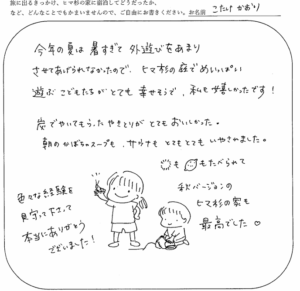 旅に出るきっかけ、ヒマ杉の家に宿泊してどうだったか、
など、どんなことでもかまいませんので、ご自由にお書きください。お名前 こたけ かおり
今年の夏は暑すぎて外遊びをあまり
させてあげられなかったので、ヒマ杉の庭でめいいっぱい
遊ぶこどもたちがとても幸せそうで、私も嬉しかったです!
炭でやいてもらったやきとりがとてもおいしかった。
朝のかぼちゃのスープも、サウナもとてもとてもいやされました。
も もたべられて
秋バージョンの
ヒマ杉の家も
最高でした♡
色々な経験を
見守って下さって
本当にありがとう
ございました!